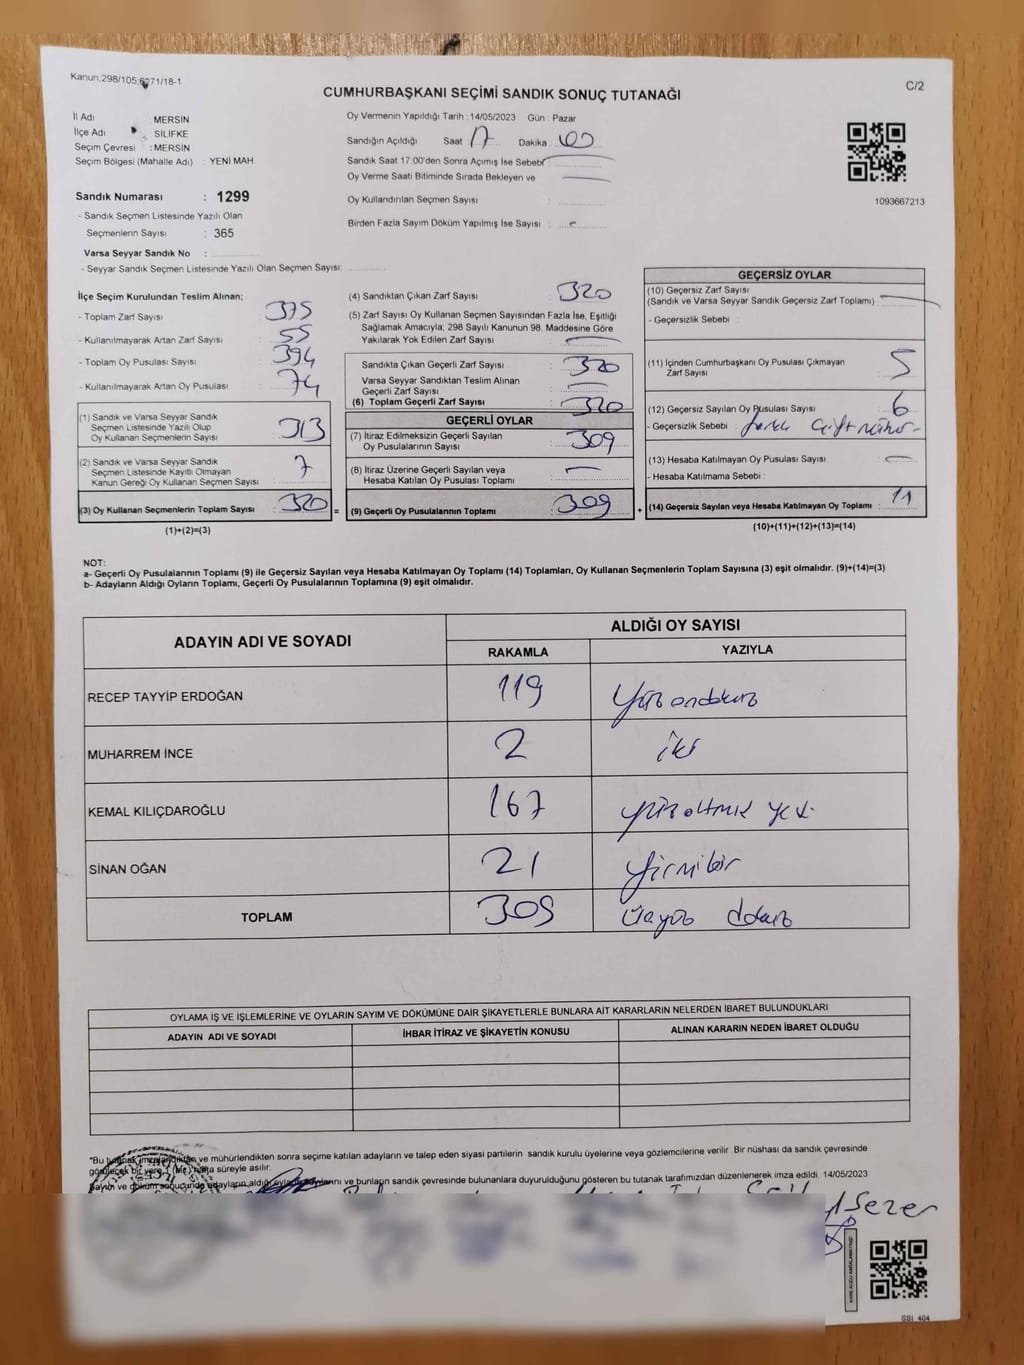 Kanun;298/105;6271/18-1
C/2
CUMHURBAŞKANI SEÇİMİ SANDIK SONUÇ TUTANAĞI
İl Adı MERSİN
İlçe Adı SİLİFKE
Seçim Çevresi :MERSİN
Seçim Bölgesi (Mahalle Adı) : YENİ MAH.
Sandık Numarası : 1299
- Sandık Seçmen Listesinde Yazılı Olan
Seçmenlerin Sayısı : 365
Varsa Seyyar Sandık No :
- Seyyar Sandık Seçmen Listesinde Yazılı Olan Seçmen Sayısı:
Oy Vermenin Yapıldığı Tarih : 14/05/2023 Gün : Pazar
Sandığın Açıldığı Saat 17 Dakika : 00
Sandık Saat 17.00'den Sonra Açımış İse Sebebi
Oy Verme Saati Bitiminde Sırada Bekleyen ve
Oy Kullandırılan Seçmen Sayısı :
Birden Fazla Sayım Döküm Yapılmış İse Sayısı : -
1093667213
İlçe Seçim Kurulundan Teslim Alınan;
- Toplam Zarf Sayısı : 375
- Kullanılmayarak Artan Zarf Sayısı : 55
- Toplam Oy Pusulası Sayısı : 394
- Kullanılmayarak Artan Oy Pusulası : 74
(1) Sandık ve Varsa Seyyar Sandık
Seçmen Listesinde Yazılı Olup
Oy Kullanan Seçmenlerin Sayısı : 313
(2) Sandık ve Varsa Seyyar Sandık
Seçmen Listesinde Kayıtlı Olmayan
Kanun Gereği Oy Kullanan Seçmen Sayısı : 7
(3) Oy Kullanan Seçmenlerin Toplam Sayısı : 320 =
(1)+(2)=(3)
(4) Sandıktan Çıkan Zarf Sayısı : 320
(5) Zarf Sayısı Oy Kullanan Seçmen Sayısından Fazla İse, Eşitliği
Sağlamak Amacıyla; 298 Sayılı Kanunun 98. Maddesine Göre
Yakılarak Yok Edilen Zarf Sayısı : -
Sandıkta Çıkan Geçerli Zarf Sayısı : 320
Varsa Seyyar Sandıktan Teslim Alınan
Geçerli Zarf Sayısı : -
(6) Toplam Geçerli Zarf Sayısı : 320
GEÇERLİ OYLAR
(7) İtiraz Edilmeksizin Geçerli Sayılan
Oy Pusulalarının Sayısı : 309
(8) İtiraz Üzerine Geçerli Sayılan veya
Hesaba Katılan Oy Pusulası Toplamı : -
(9) Geçerli Oy Pusulalarının Toplamı : 309 +
GEÇERSİZ OYLAR
(10) Geçersiz Zarf Sayısı
(Sandık ve Varsa Seyyar Sandık Geçersiz Zarf Toplamı) : -
- Geçersizlik Sebebi :
(11) İçinden Cumhurbaşkanı Oy Pusulası Çıkmayan
Zarf Sayısı : 5
(12) Geçersiz Sayılan Oy Pusulası Sayısı : 6
- Geçersizlik Sebebi : Çift mühür
(13) Hesaba Katılmayan Oy Pusulası Sayısı : -
- Hesaba Katılmama Sebebi :
(14) Geçersiz Sayılan veya Hesaba Katılmayan Oy Toplamı : 11
(10)+(11)+(12)+(13)=(14)
NOT:
a- Geçerli Oy Pusulalarının Toplamı (9) ile Geçersiz Sayılan veya Hesaba Katılmayan Oy Toplamı (14) Toplamları, Oy Kullanan Seçmenlerin Toplam Sayısına (3) eşit olmalıdır. (9)+(14)=(3)
b- Adayların Aldığı Oyların Toplamı, Geçerli Oy Pusulalarının Toplamına (9) eşit olmalıdır.
ADAYIN ADI VE SOYADI ALDIĞI OY SAYISI
RAKAMLA YAZIYLA
RECEP TAYYİP ERDOĞAN 119 Yüzondokuz
MUHARREM İNCE 2 iki
KEMAL KILIÇDAROĞLU 167 yüzaltmış yedi
SİNAN OĞAN 21 yirmibir
TOPLAM 309 Üçyüz dokuz
OYLAMA İŞ VE İŞLEMLERİNE VE OYLARIN SAYIM VE DÖKÜMÜNE DAİR ŞİKAYETLERLE BUNLARA AİT KARARLARIN NELERDEN İBARET BULUNDUKLARI
ADAYIN ADI VE SOYADI İHBAR İTİRAZ VE ŞİKAYETİN KONUSU ALINAN KARARIN NEDEN İBARET OLDUĞU
*Bu tutanak imzalandıktan ve mühürlendikten sonra seçime katılan adayların ve talep eden siyasi partilerin sandık kurulu üyelerine veya gözlemcilerine verilir .Bir nüshası da sandık çevresinde
görülecek bir yere 1 (bir) hafta süreyle asılır.
Sayım ve döküm sonucunda adayların aldığı oyların ve bunların sandık çevresinde bulunanlara duyurulduğunu gösteren bu tutanak tarafımızdan düzenlenerek imza edildi. 14/05/2023
Sezer
SSI_404